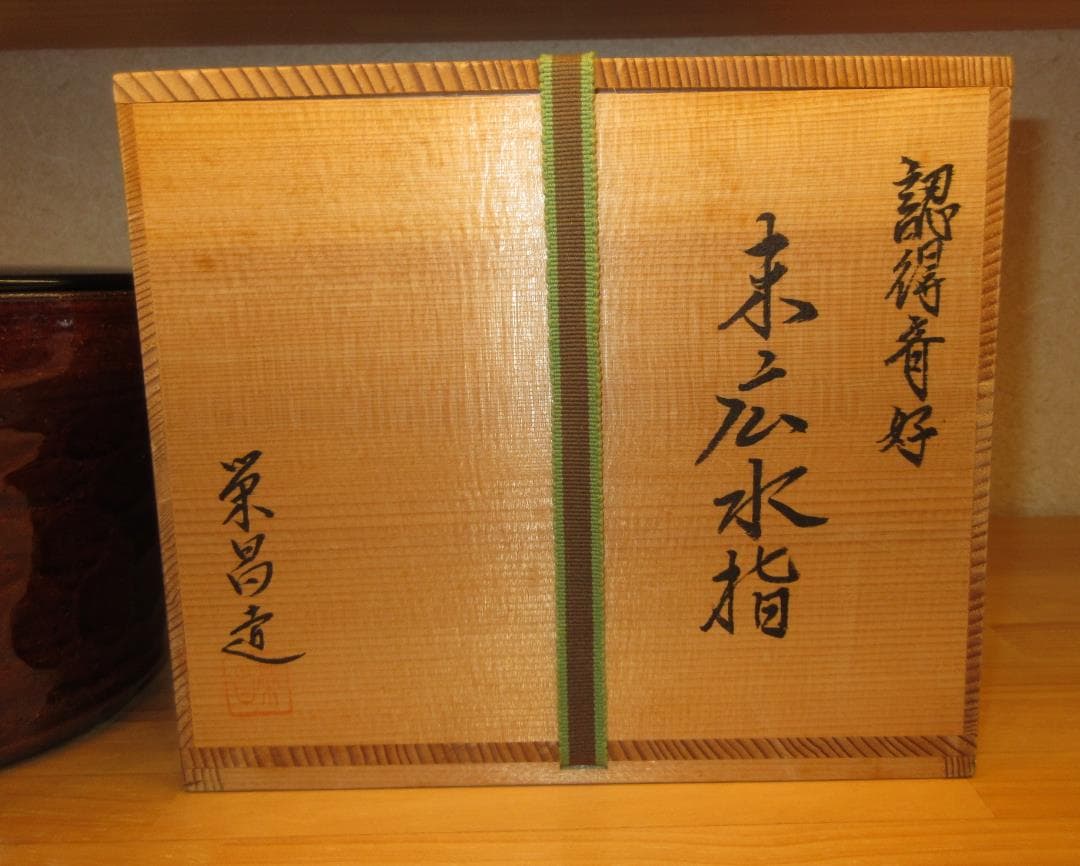 認得斎好
末広水指
栄昌造